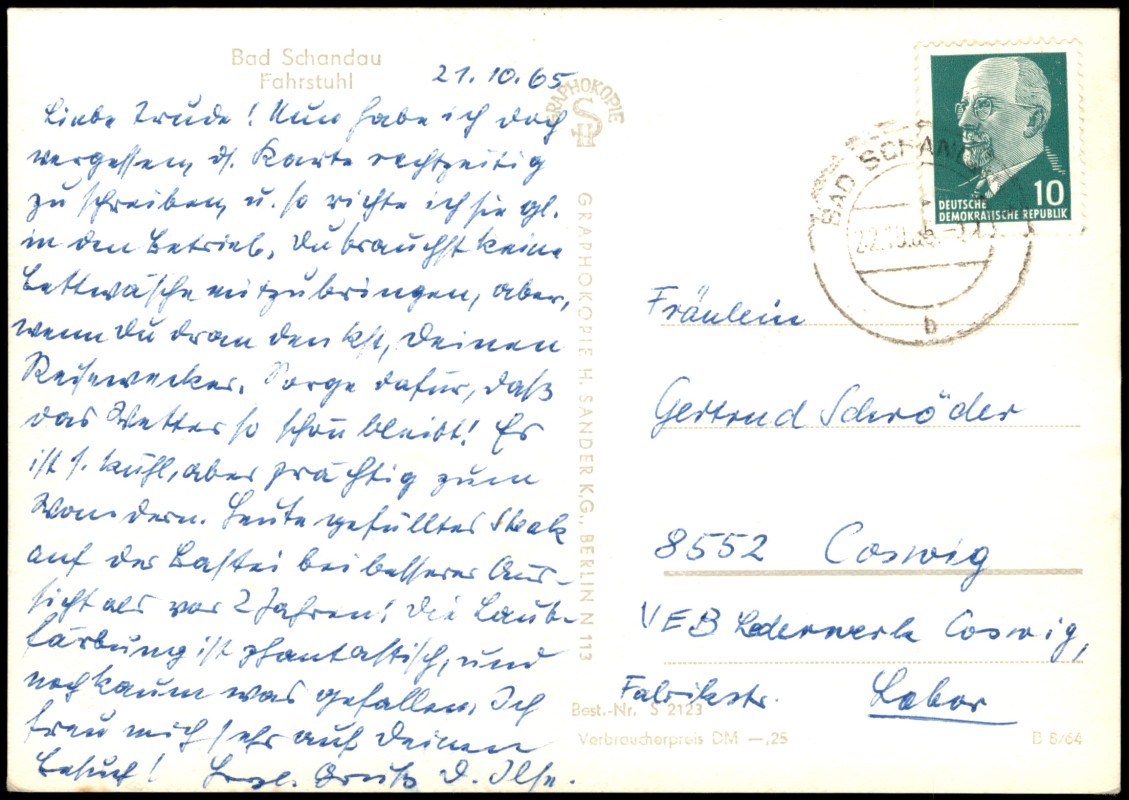 Bad Schandau
Fahrstuhl
21.10.65
Liebe Trude! Nun habe ich doch
vergessen, d. Karte rechtzeitig
zu schreiben, u. so richte ich sie gl.
in den Betrieb. Du brauchst keine
Bettwäsche mitzubringen, aber,
wenn Du dran denkst, Deinen
Reisewecker. Sorge dafür, daß
das Wetter so schön bleibt! Es
ist s. kühl, aber prächtig zum
Wandern. Heute gefülltes Steak
auf der Bastei bei besserer Aus-
sicht als vor 2 Jahren! Die Laub-
färbung ist phantastisch, und
noch kaum was gefallen. Ich
freu mich sehr auf Deinen
Besuch! Herzl. Gruß D. Ilse.
GRAPHOKOPIE
HS
GRAPHOKOPIE H. SANDER K.G., BERLIN N 113
DEUTSCHE
DEMOKRATISCHE REPUBLIK
10
BAD SCHAN
22.10.65
b
Fräulein
Gertrud Schröder
8552 Coswig
VEB Lederwerk Coswig,
Fabrikstr. Labor
Best.-Nr. S 2123
Verbraucherpreis DM —,25
B 8/64